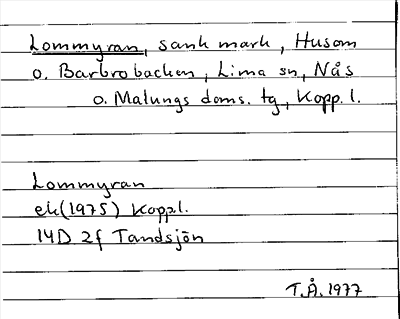 Lommyran, sank mark, Husom
o. Barbrobacken, Lima sn, Nås
o. Malungs doms. tg, Kopp. l.
Lommyran
ek(1975) Kopp.l.
14D 2f Tandsjön
T.Å. 1977